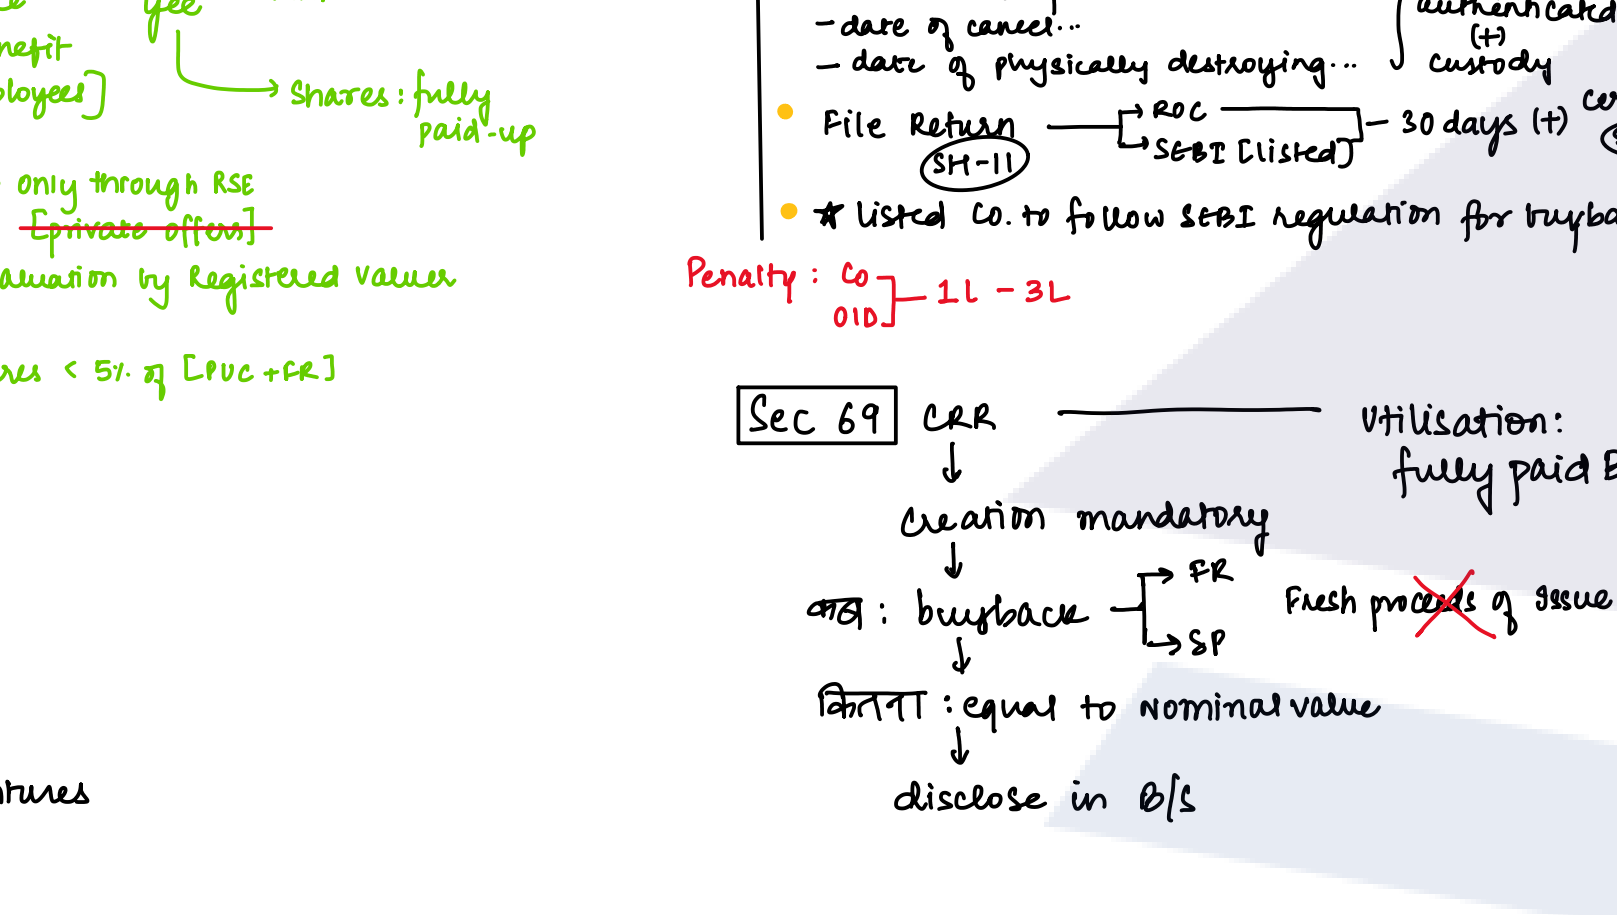 yee
nefit
ployees]
Shares: fully
paid-up
only through RSE
[private offers]
aluation by Registered valuer
res < 5% of [PUC + FR]
tures
- date of cancel...
- date of physically destroying...
authenticated
(+)
custody
File Return
SH-11
ROC
SEBI [listed]
- 30 days (+)
★ listed Co. to follow SEBI regulation for buyba
Penalty: Co
OID
1L - 3L
Sec 69 CRR
Utilisation:
fully paid
creation mandatory
कब : buyback
FR
SP
Fresh proceeds of Issue
कितना : equal to Nominal value
disclose in B/S